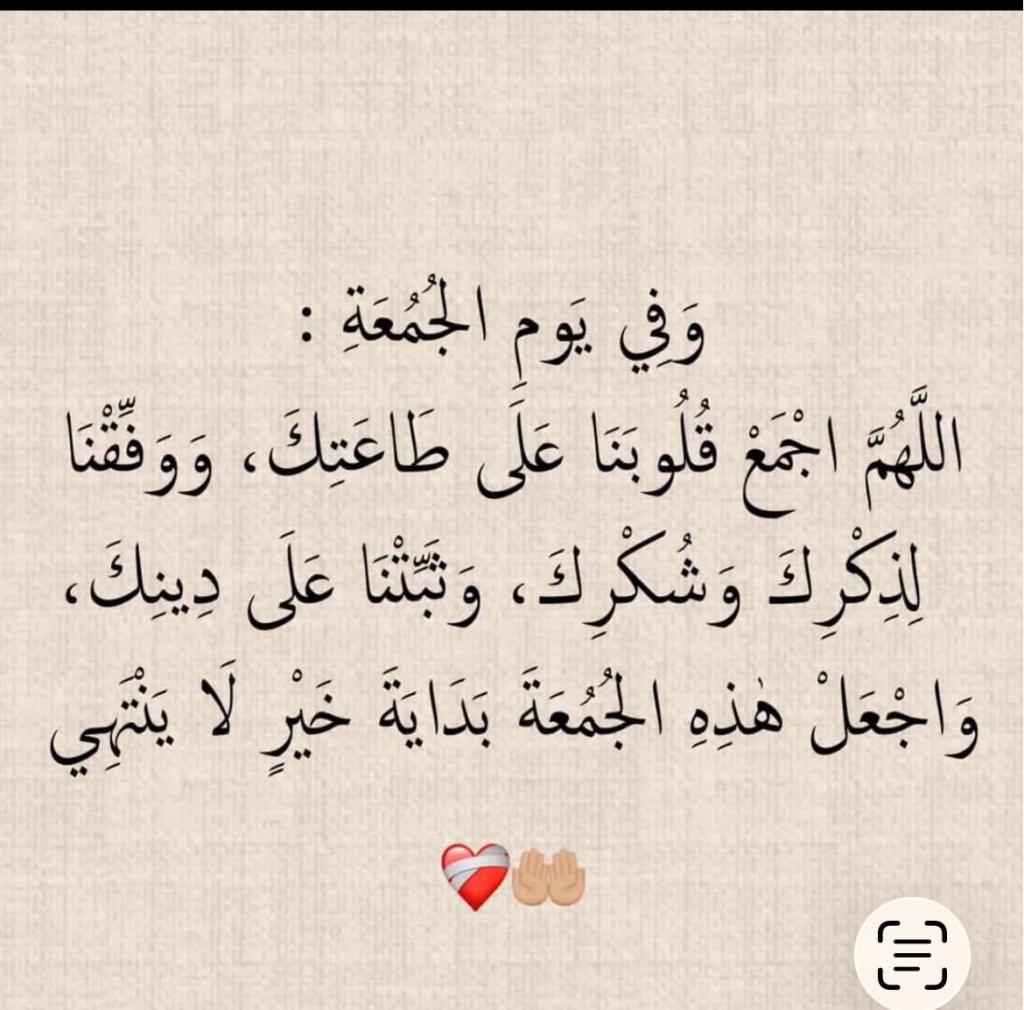 وَفِي يَومِ الجُمُعَةِ :
اللَّهُمَّ اجْمَعْ قُلُوبَنَا عَلَى طَاعَتِكَ، وَوَفِّقْنَا
لِذِكْرِكَ وَشُكْرِكَ، وَثَبِّتْنَا عَلَى دِينِكَ،
وَاجْعَلْ هٰذِهِ الجُمُعَةَ بَدَايَةَ خَيْرٍ لَا يَنْتَهِي
❤️‍🩹🤲🏼